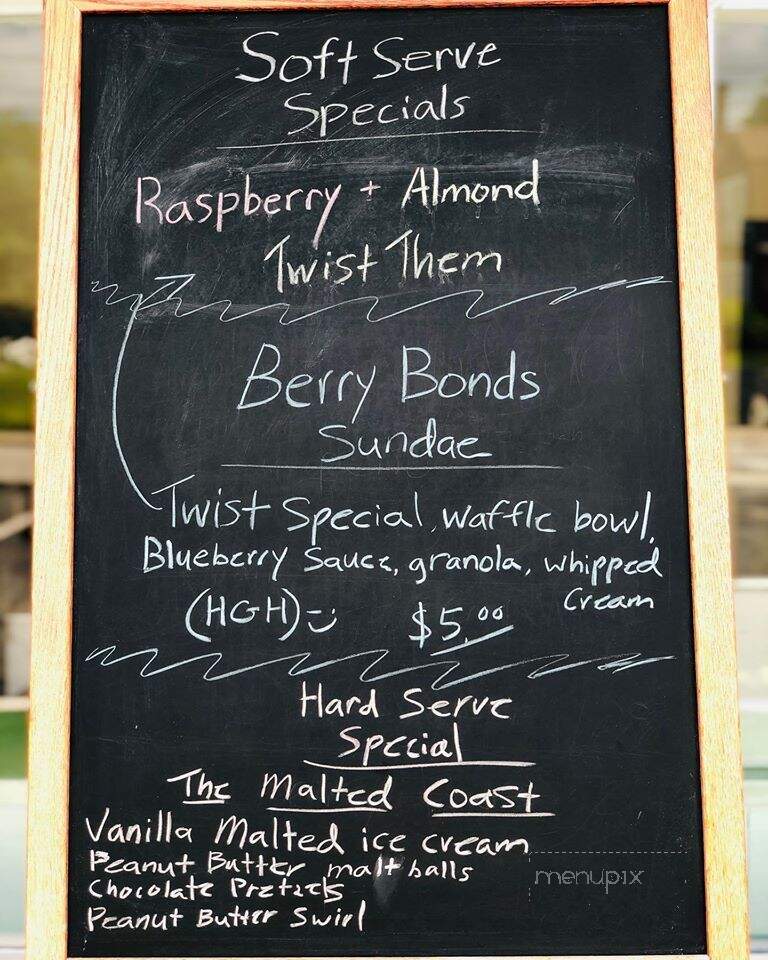 Soft Serve
Specials
Raspberry + Almond
Twist Them
Berry Bonds
Sundae
Twist Special, waffle bowl,
Blueberry Sauce, granola, whipped
Cream
(HGH) :) $5.00
Hard Serve
Special
The Malted Coast
Vanilla Malted ice cream
Peanut Butter malt balls
Chocolate Pretzels
Peanut Butter Swirl
menupix